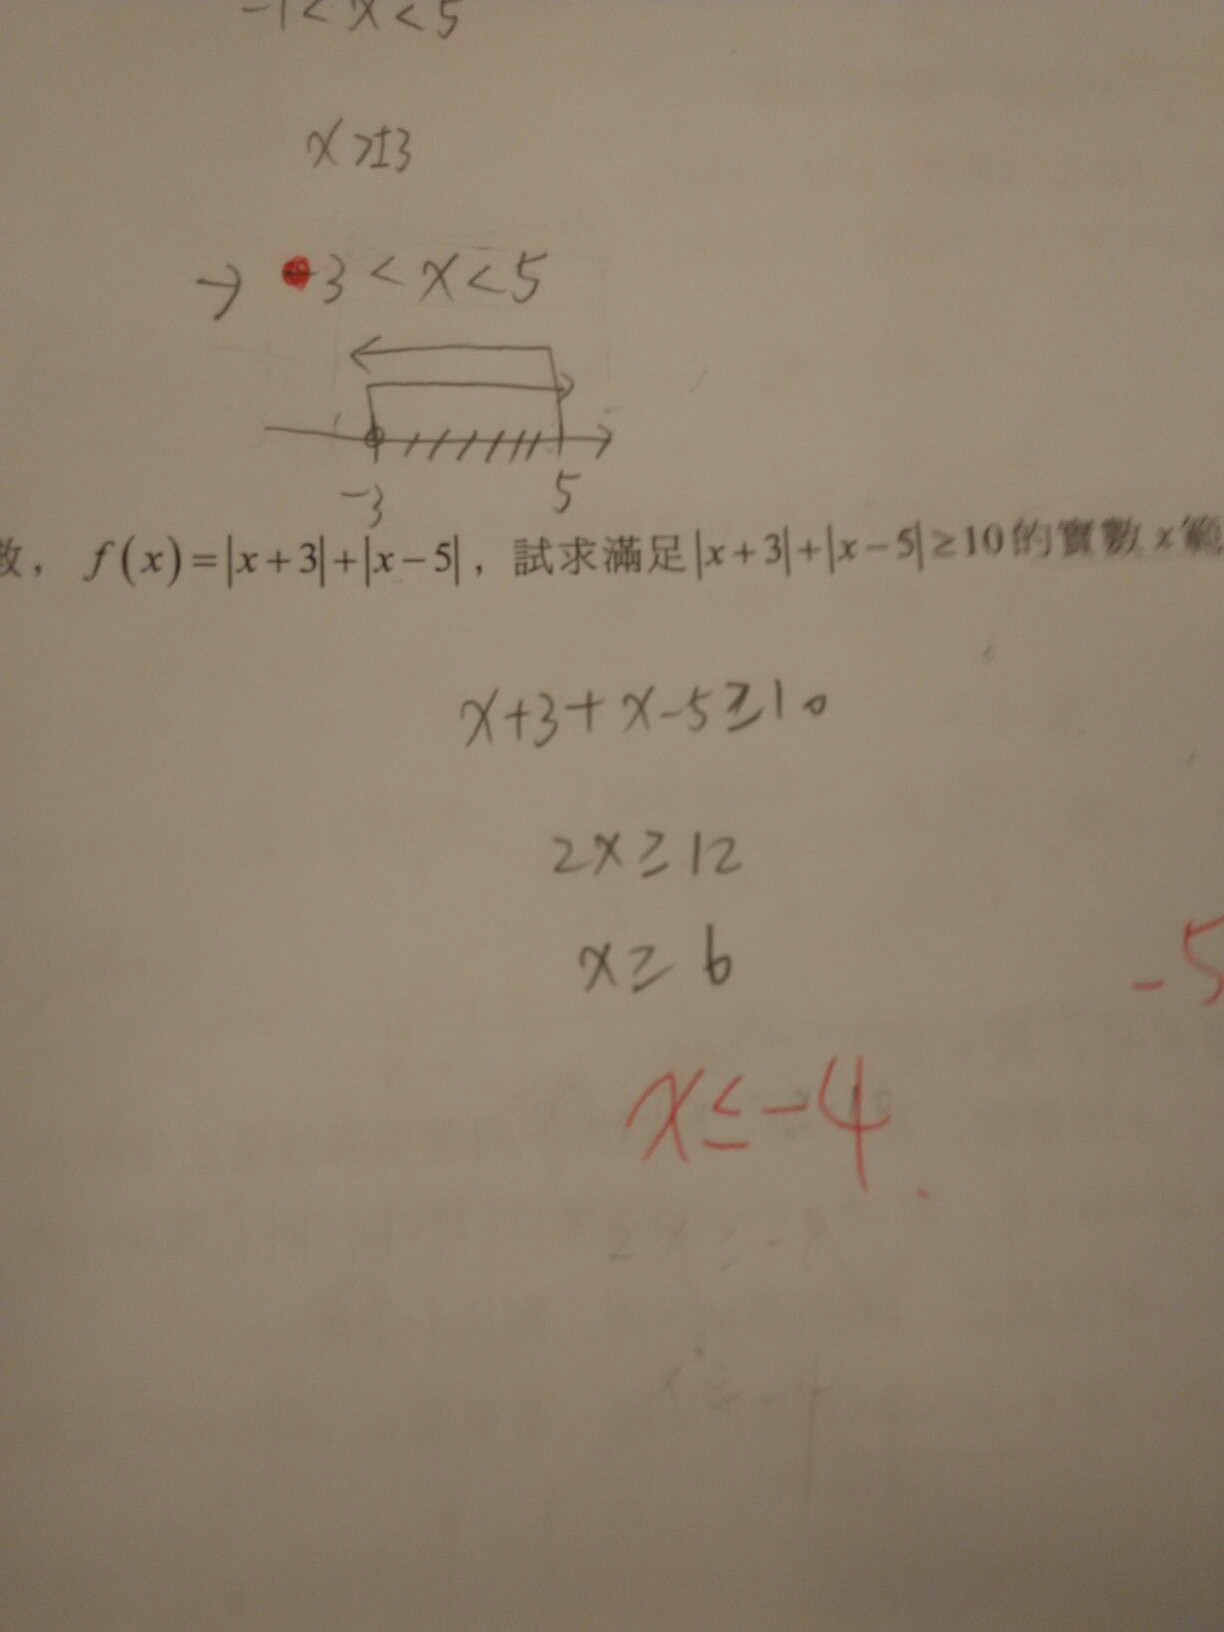 -1 < x < 5
x > ±3
→ 3 < x < 5
-3 5
數，f(x)=|x+3|+|x-5|，試求滿足|x+3|+|x-5|≥10的實數x範
x+3+x-5≥10
2x ≥ 12
x ≥ 6
-5
x ≤ -4